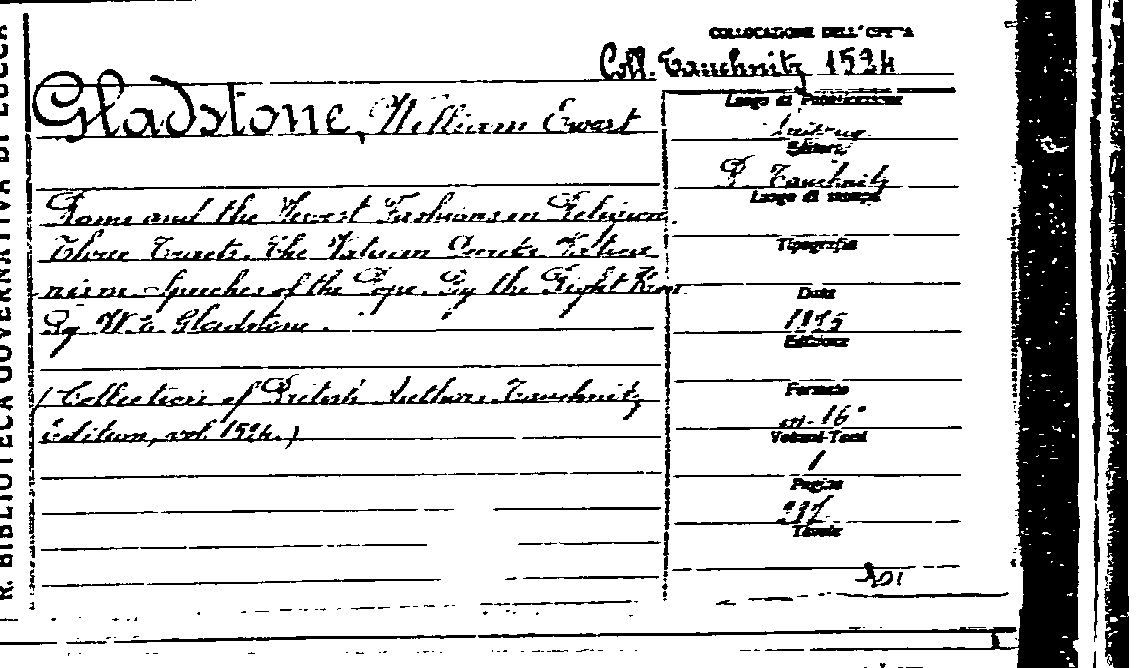 R. BIBLIOTECA GOVERNATIVA DI LUCCA
COLLOCAZIONE DELL'OPERA
Coll. Tauchnitz 1524
Gladstone, William Ewart
Rome and the Newest Fashions in Religion.
Three Tracts. The Vatican Decrees. Vatica-
nism. Speeches of the Pope. By the Right Hon.
By W. E. Gladstone.
(Collection of British Authors. Tauchnitz
edition, vol. 1524.)
Luogo di Pubblicazione
Editore
B. Tauchnitz
Luogo di stampa
Tipografia
Data
1875
Edizione
Formato
in-16°
Volumi-Tomi
1
Pagine
Tavole